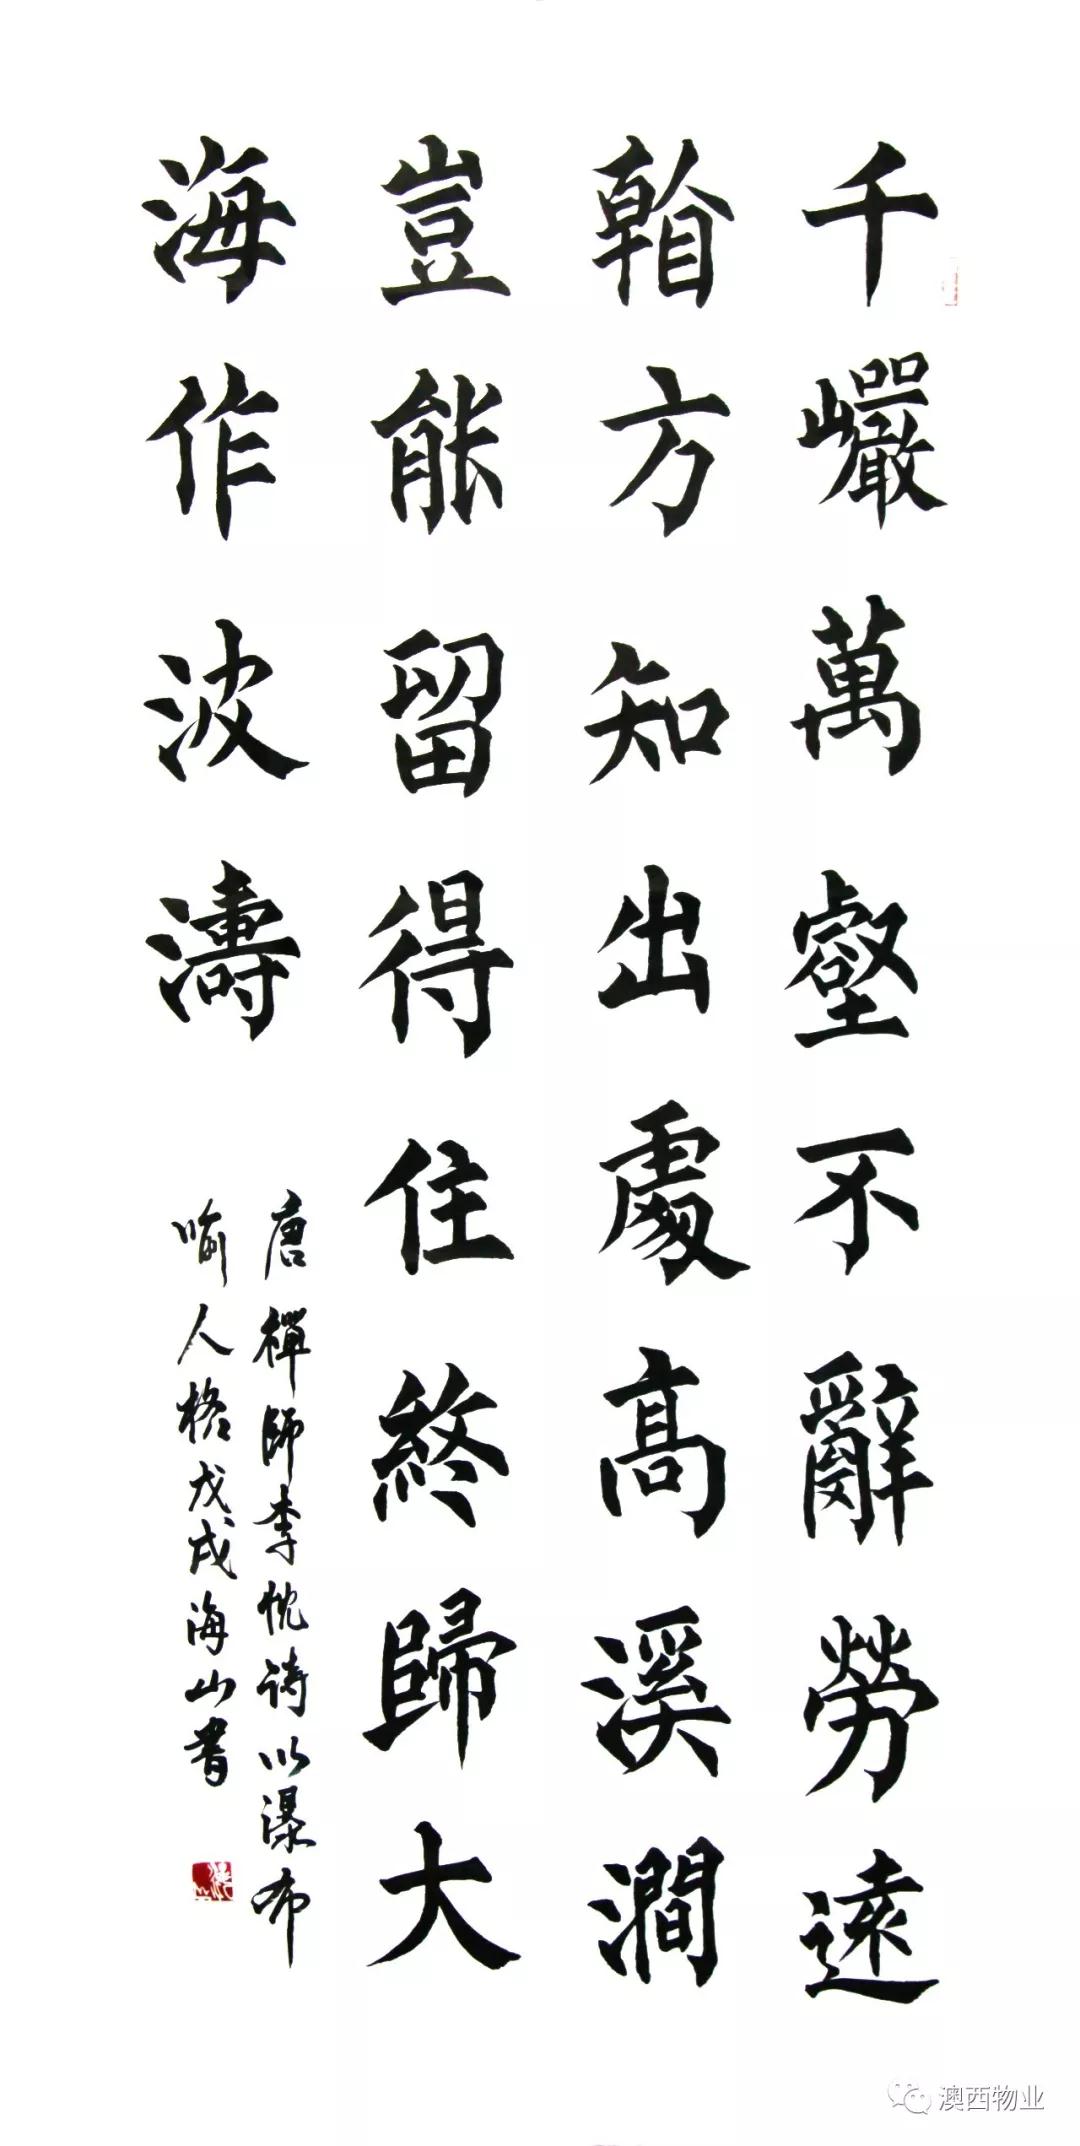 千巗萬壑不辭勞遠
方知出處高溪澗
豈能留得住終歸大
海作波濤
唐禪師李忱诗以瀑布
喻人格戊戌海山書
澳西物业